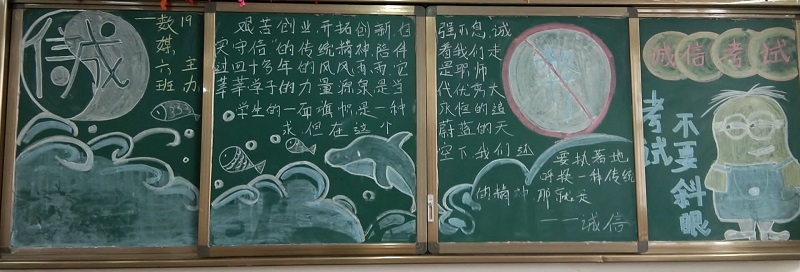 诚信
19
数媒六班
主办
艰苦创业,开拓创新,自
天守信"的传统精神,陪伴
过四十多年的风风雨雨,它
莘莘学子的力量源泉是当
学生的一面旗帜,是一种
求恒在这个
强不息,诚
着我们走
是罩师
代优秀大
永恒的追
蔚蓝的天
空下,我们还
要执着地
呼拨一种传统
的精神,那就是
——诚信
诚信考试
考试
不要斜眼